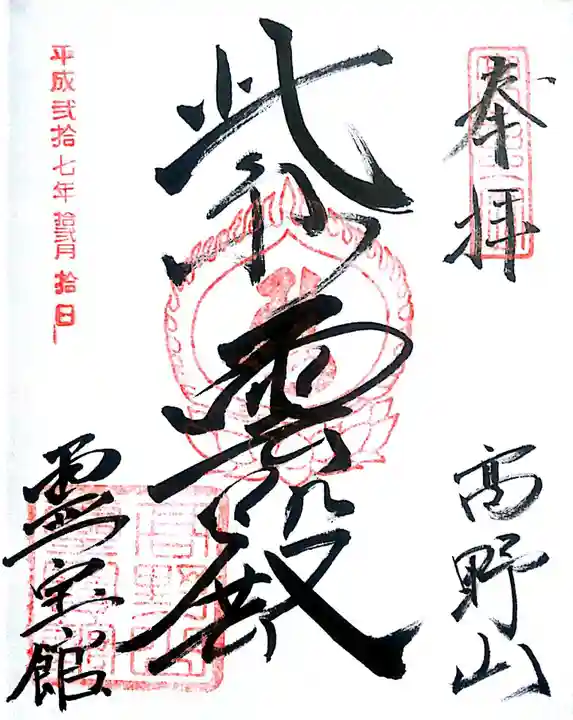 奉拝
高野山
紫雲殿
霊宝館
平成弐拾七年拾弐月拾日